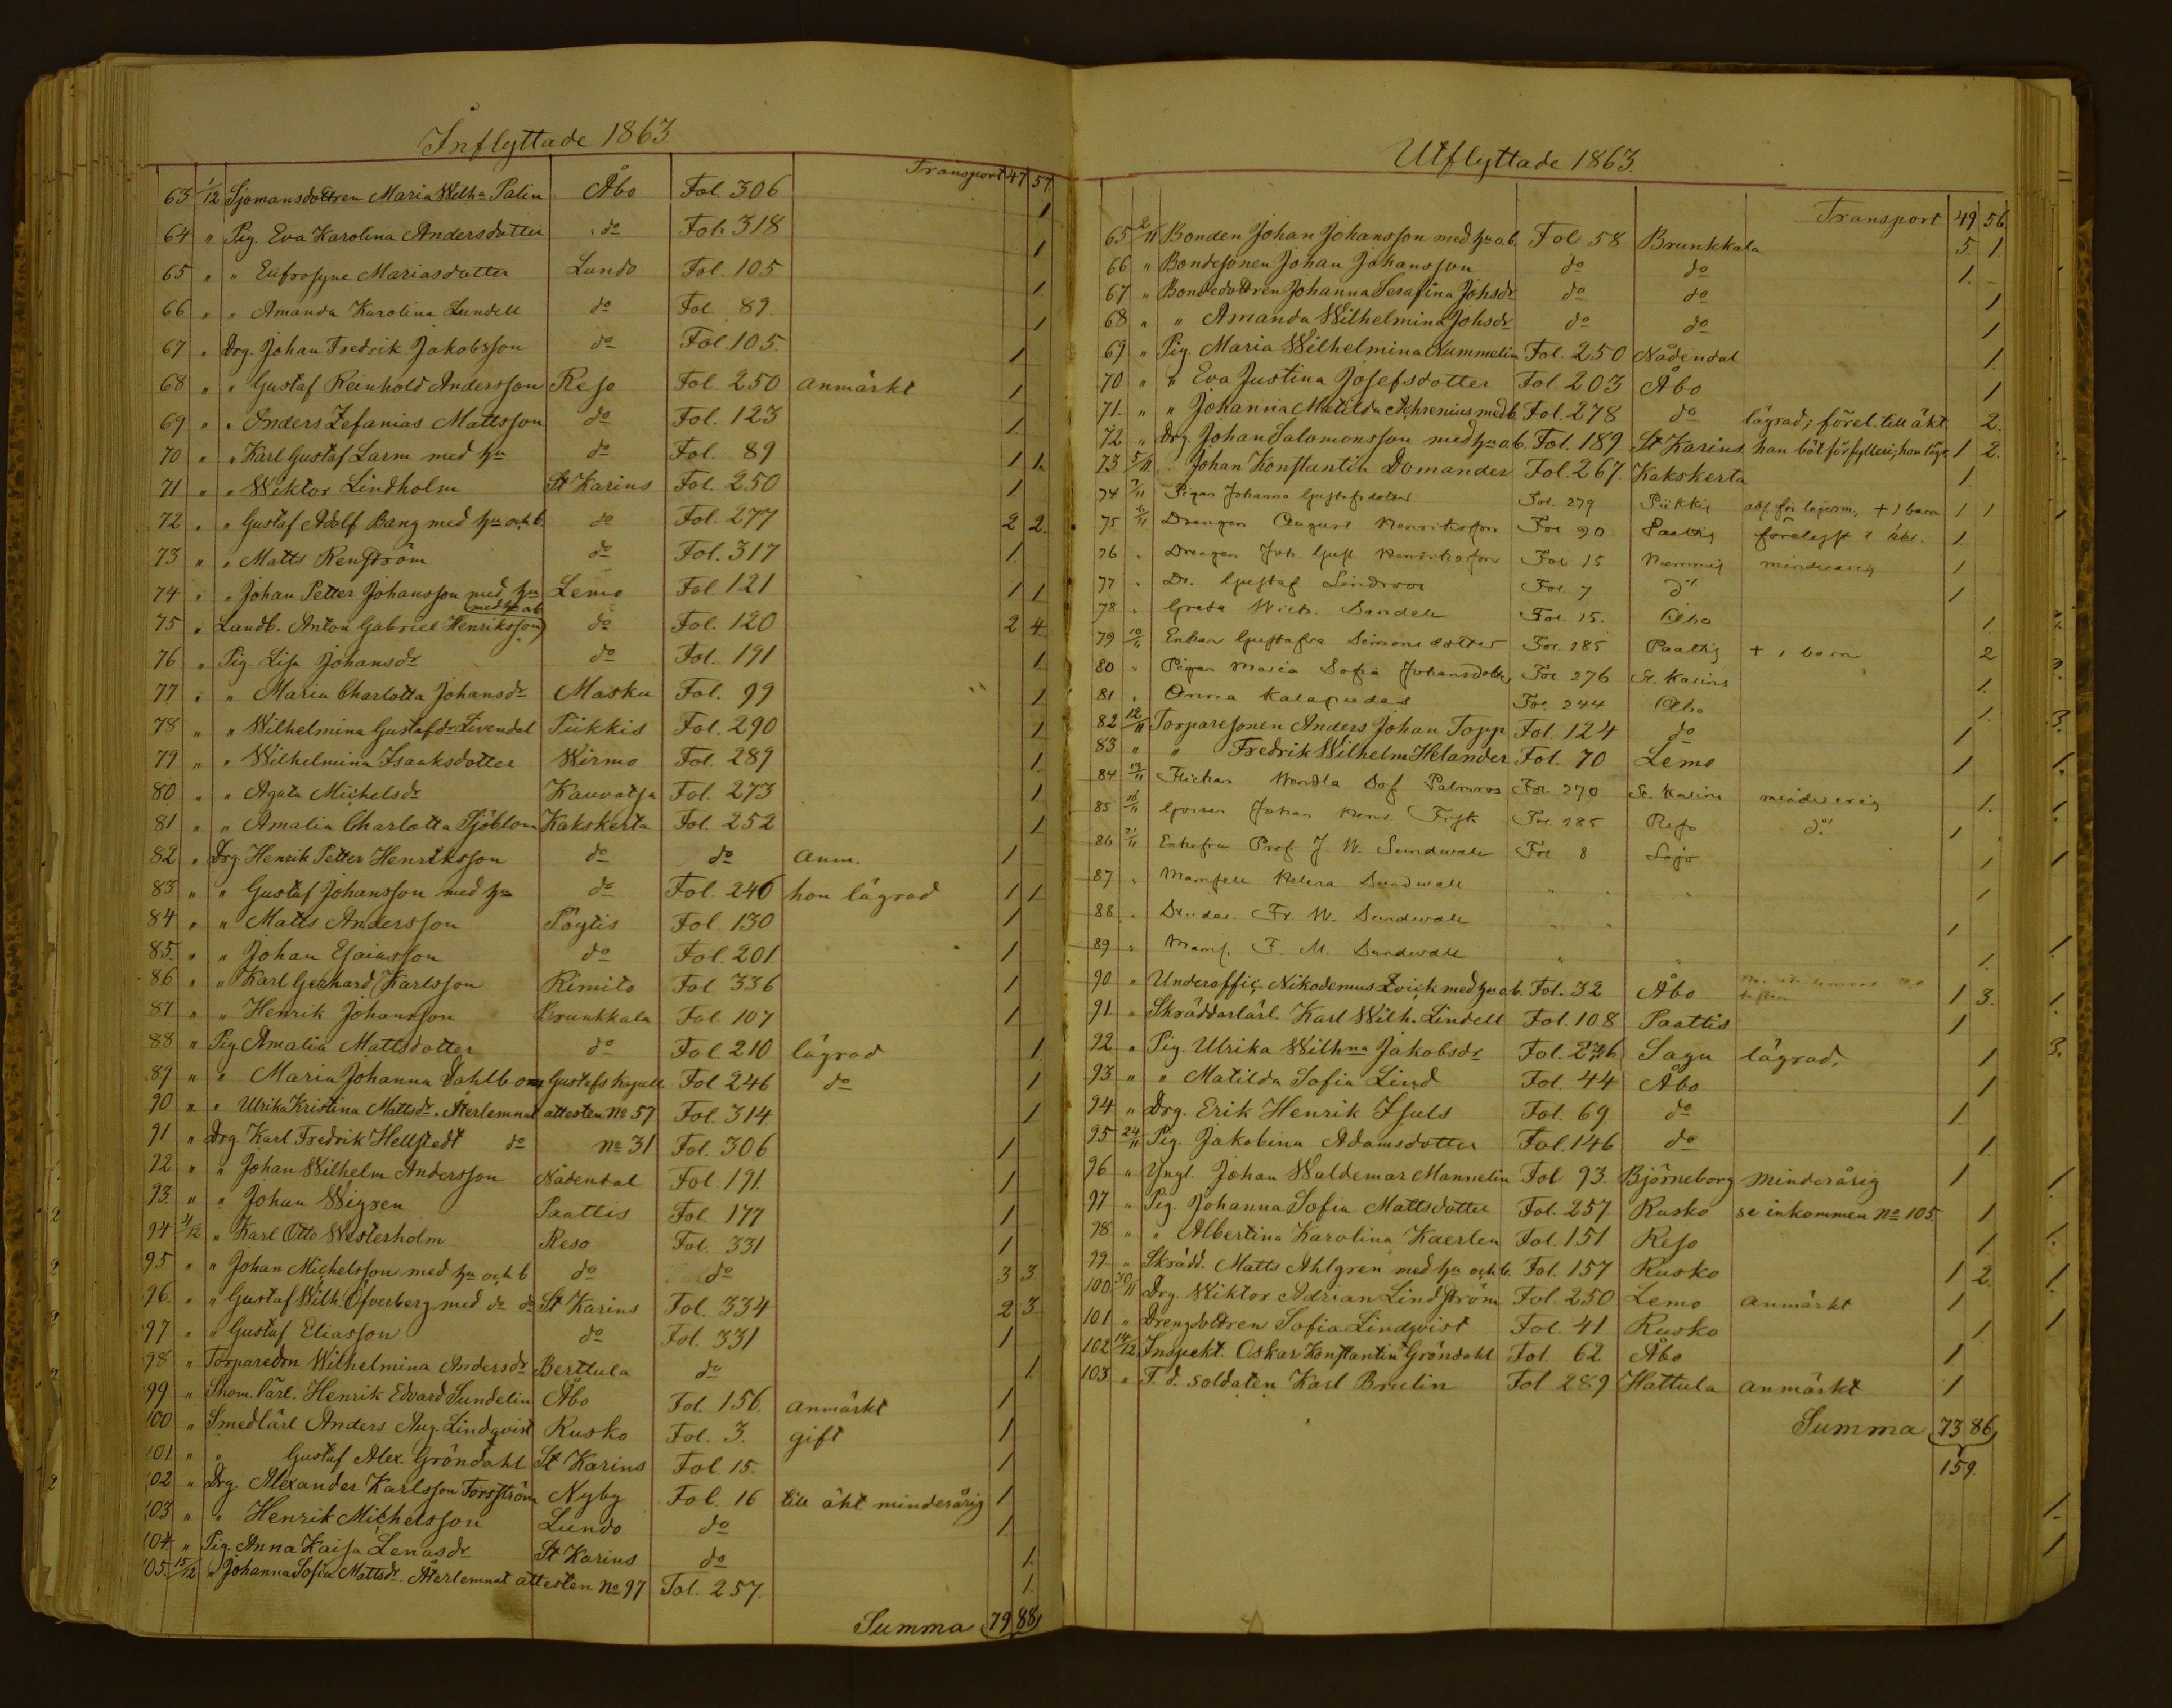 Inflyttade 1863.
Transport 47 57.
63 1/12 Sjömansdottren Maria Wilh:a Palin Åbo Fol. 306 1
64 " Pig. Eva Karolina Andersdotter do Fol. 318 1
65 " " Eufrosyne Mariasdotter Lundo Fol. 105 1.
66 " " Amanda Karolina Lundell do Fol. 89. 1
67 " Drg. Johan Fredrik Jakobsson do Fol. 105. 1
68 " " Gustaf Reinhold Andersson Reso Fol. 250 anmärkt 1
69 " " Anders Zefanias Mattsson do Fol. 123 1.
70 " " Karl Gustaf Larm med hu do Fol. 89 1 1.
71 " " Wiktor Lindholm St Karins Fol. 250 1
72 " " Gustaf Adolf Bang med hu och b. do Fol. 277 2 2.
73 " " Matts Renström do Fol. 317 1.
74 " " Johan Petter Johansson med hu Lemo Fol. 121 1 1
75 " Landb. Anton Gabriel Henriksson (med hu ab do Fol. 120 2 4
76 " Pig. Lisa Johansdr do Fol. 191 1.
77 " " Maria Charlotta Johansdr Masku Fol. 99 1
78 " " Wilhelmina Gustafdr Livendal Piikkis Fol. 290 1
79 " " Wilhelmina Isaaksdotter Wirmo Fol. 289 1.
80 " " Agata Michelsdr Kauvatsa Fol. 273 1
81 " " Amalia Charlotta Sjöblom Kakskerta Fol. 252 1
82 " Drg. Henrik Petter Henriksson do do anm. 1
83 " " Gustaf Johansson med hu do Fol. 246 hon lägrad 1 1
84 " " Matts Andersson Pöytis Fol. 130 1
85. " " Johan Esaiasson do Fol. 201 1
86 " " Karl Gerhard Karlsson Rimito Fol. 336 1
87 " " Henrik Johansson Brunkkala Fol. 107 1
88 " Pig Amalia Mattsdotter do Fol. 210 lägrad 1.
89 " " Maria Johanna Dahlbom Gustafs Kapell Fol 246 do 1
90 " " Ulrika Kristina Mattsdr. Återlemnat attesten No 57 Fol. 314 1
91 " Drg. Karl Fredrik Hellstedt do No 31 Fol. 306 1
92 " " Johan Wilhelm Andersson Nådendal Fol. 191. 1
93. " " Johan Wigren Paattis Fol. 177 1
94 4/12 " Karl Otto Westerholm Reso Fol. 331 1
95 " " Johan Michelsson med hu och b do do 3 3.
96. " " Gustaf Wilh. Öfverberg med do do St Karins Fol. 334 2 3.
97 " " Gustaf Eliasson do Fol. 331 1
98 " Torparedrn Wilhelmina Andersdr Berttula do 1.
99 " Skom. lärl. Henrik Edvard Sundelin Åbo Fol. 156. anmärkt 1
100 " Smedlärl Anders Aug. Lindqvist Rusko Fol. 3. gift 1
101 " " Gustaf Alex. Gröndahl St Karins Fol. 15. 1
102 " Drg. Alexander Karlsson Forsström Nyby Fol. 16 till äkt minderårig 1
103 " " Henrik Michelsson Lundo do 1.
104. " Pig. Anna Kaisa Lenasdr St Karins do 1.
105. 15/12 " Johanna Sofia Mattsdr. Återlemnat attesten No 97 Fol. 257. 1.
Summa 79 88
Utflyttade 1863.
Transport 49 56
65 2/11 Bonden Johan Johansson med hu ab. Fol 58 Brunkkala 5. 1.
66 " Bondesonen Johan Johansson do do 1. -
67 " Bondedottren Johanna Serafina Johsdr do do 1
68 " " Amanda Wilhelmina Johsdr do do 1
69 " Pig. Maria Wilhelmina Nummelin Fol. 250 Nådendal 1.
70 " " Eva Justina Josefsdotter Fol. 203 Åbo 1
71. " " Johanna Matilda Achrenius med b. Fol. 278 do lägrad; förel. till äkt 2.
72 " Drg. Johan Salomonsson med hu ab. Fol. 189 St Karins han böt för fylleri; hon lägr. 1 2.
73 5/11 " Johan Konstantin Domander Fol. 267. Kakskerta 1.
74 7/11 Pigan Johanna Gustafsdotter Fol. 279 Piikkis + 1 barn 1 1
75 Drengen August Henriksson Fol 90 Paattis förelyst i äkt. 1.
76 " Drengen Joh. Gust. Henriksson Fol 15 Nummis minderårig 1
77 " Dr. Gustaf Lindroos Fol. 7 do 1
78 " Greta Wilh. Sandell Fol. 15. Åbo 1.
79 10/11 Enkan Gustafva Simonsdotter Fol. 285 Paattis + 1 barn 2
80 " Pigan Maria Sofia Johansdotter Fol 276 St. Karins 1.
81 " Anna Kalapudas Fol. 244 Åbo 1.
82 12/11 Torparesonen Anders Johan Topp Fol. 124 do 1
83 " " Fredrik Wilhelm Helander Fol. 70 Lemo 1
84 13/11 Flickan Wendla Sof. Palmroos Fol. 270 St. Karins minderårig 1.
85 16/11 Gossen Johan Henr. Fisk Fol. 285 Reso do 1
86 21/11 Enkefru Prof. J. W. Sundwall Fol 8 Lojo 1
87 " Mamsell Helena Sundwall " " 1
88 " Fr. W. Sundwall " " 1
89 " Mams. F. M. Sundwall " " 1.
90 " Underoffic. Nikodemus Zvick med hu ab. Fol. 32 Åbo 1 3.
91 " Skräddarlärl. Karl Wilh. Lindell Fol. 108 Paattis 1
92 " Pig. Ulrika Wilhna Jakobsdr Sagu lägrad. 1
93 " " Matilda Sofia Lind Fol. 44 Åbo 1
94 " Drg. Erik Henrik Isuls Fol. 69 do 1.
95 24/11 Pig. Jakobina Adamsdotter Fol. 146 do 1.
96 " Yngl. Johan Waldemar Mannelin Fol 93. Björneborg minderårig 1
97 " Pig. Johanna Sofia Mattsdotter Fol. 257 Rusko se inkommen No 105. 1.
98 " " Albertina Karolina Kaerlen Fol. 151 Reso 1.
99 " Skrädd. Matts Ahlgren med hu och b. Fol. 157 Rusko 1 2.
100 30/11 Drg. Wiktor Adrian Lindström Fol. 250 Lemo anmärkt 1
101 " Drengdottren Sofia Lindqvist Fol. 41 Rusko 1
102 14/12 Inspekt. Oskar Konstantin Gröndahl Fol. 62 Åbo 1
103 " F. d. soldaten Karl Brulin Fol 289 Hattula anmärkt 1
Summa 73 86
159.